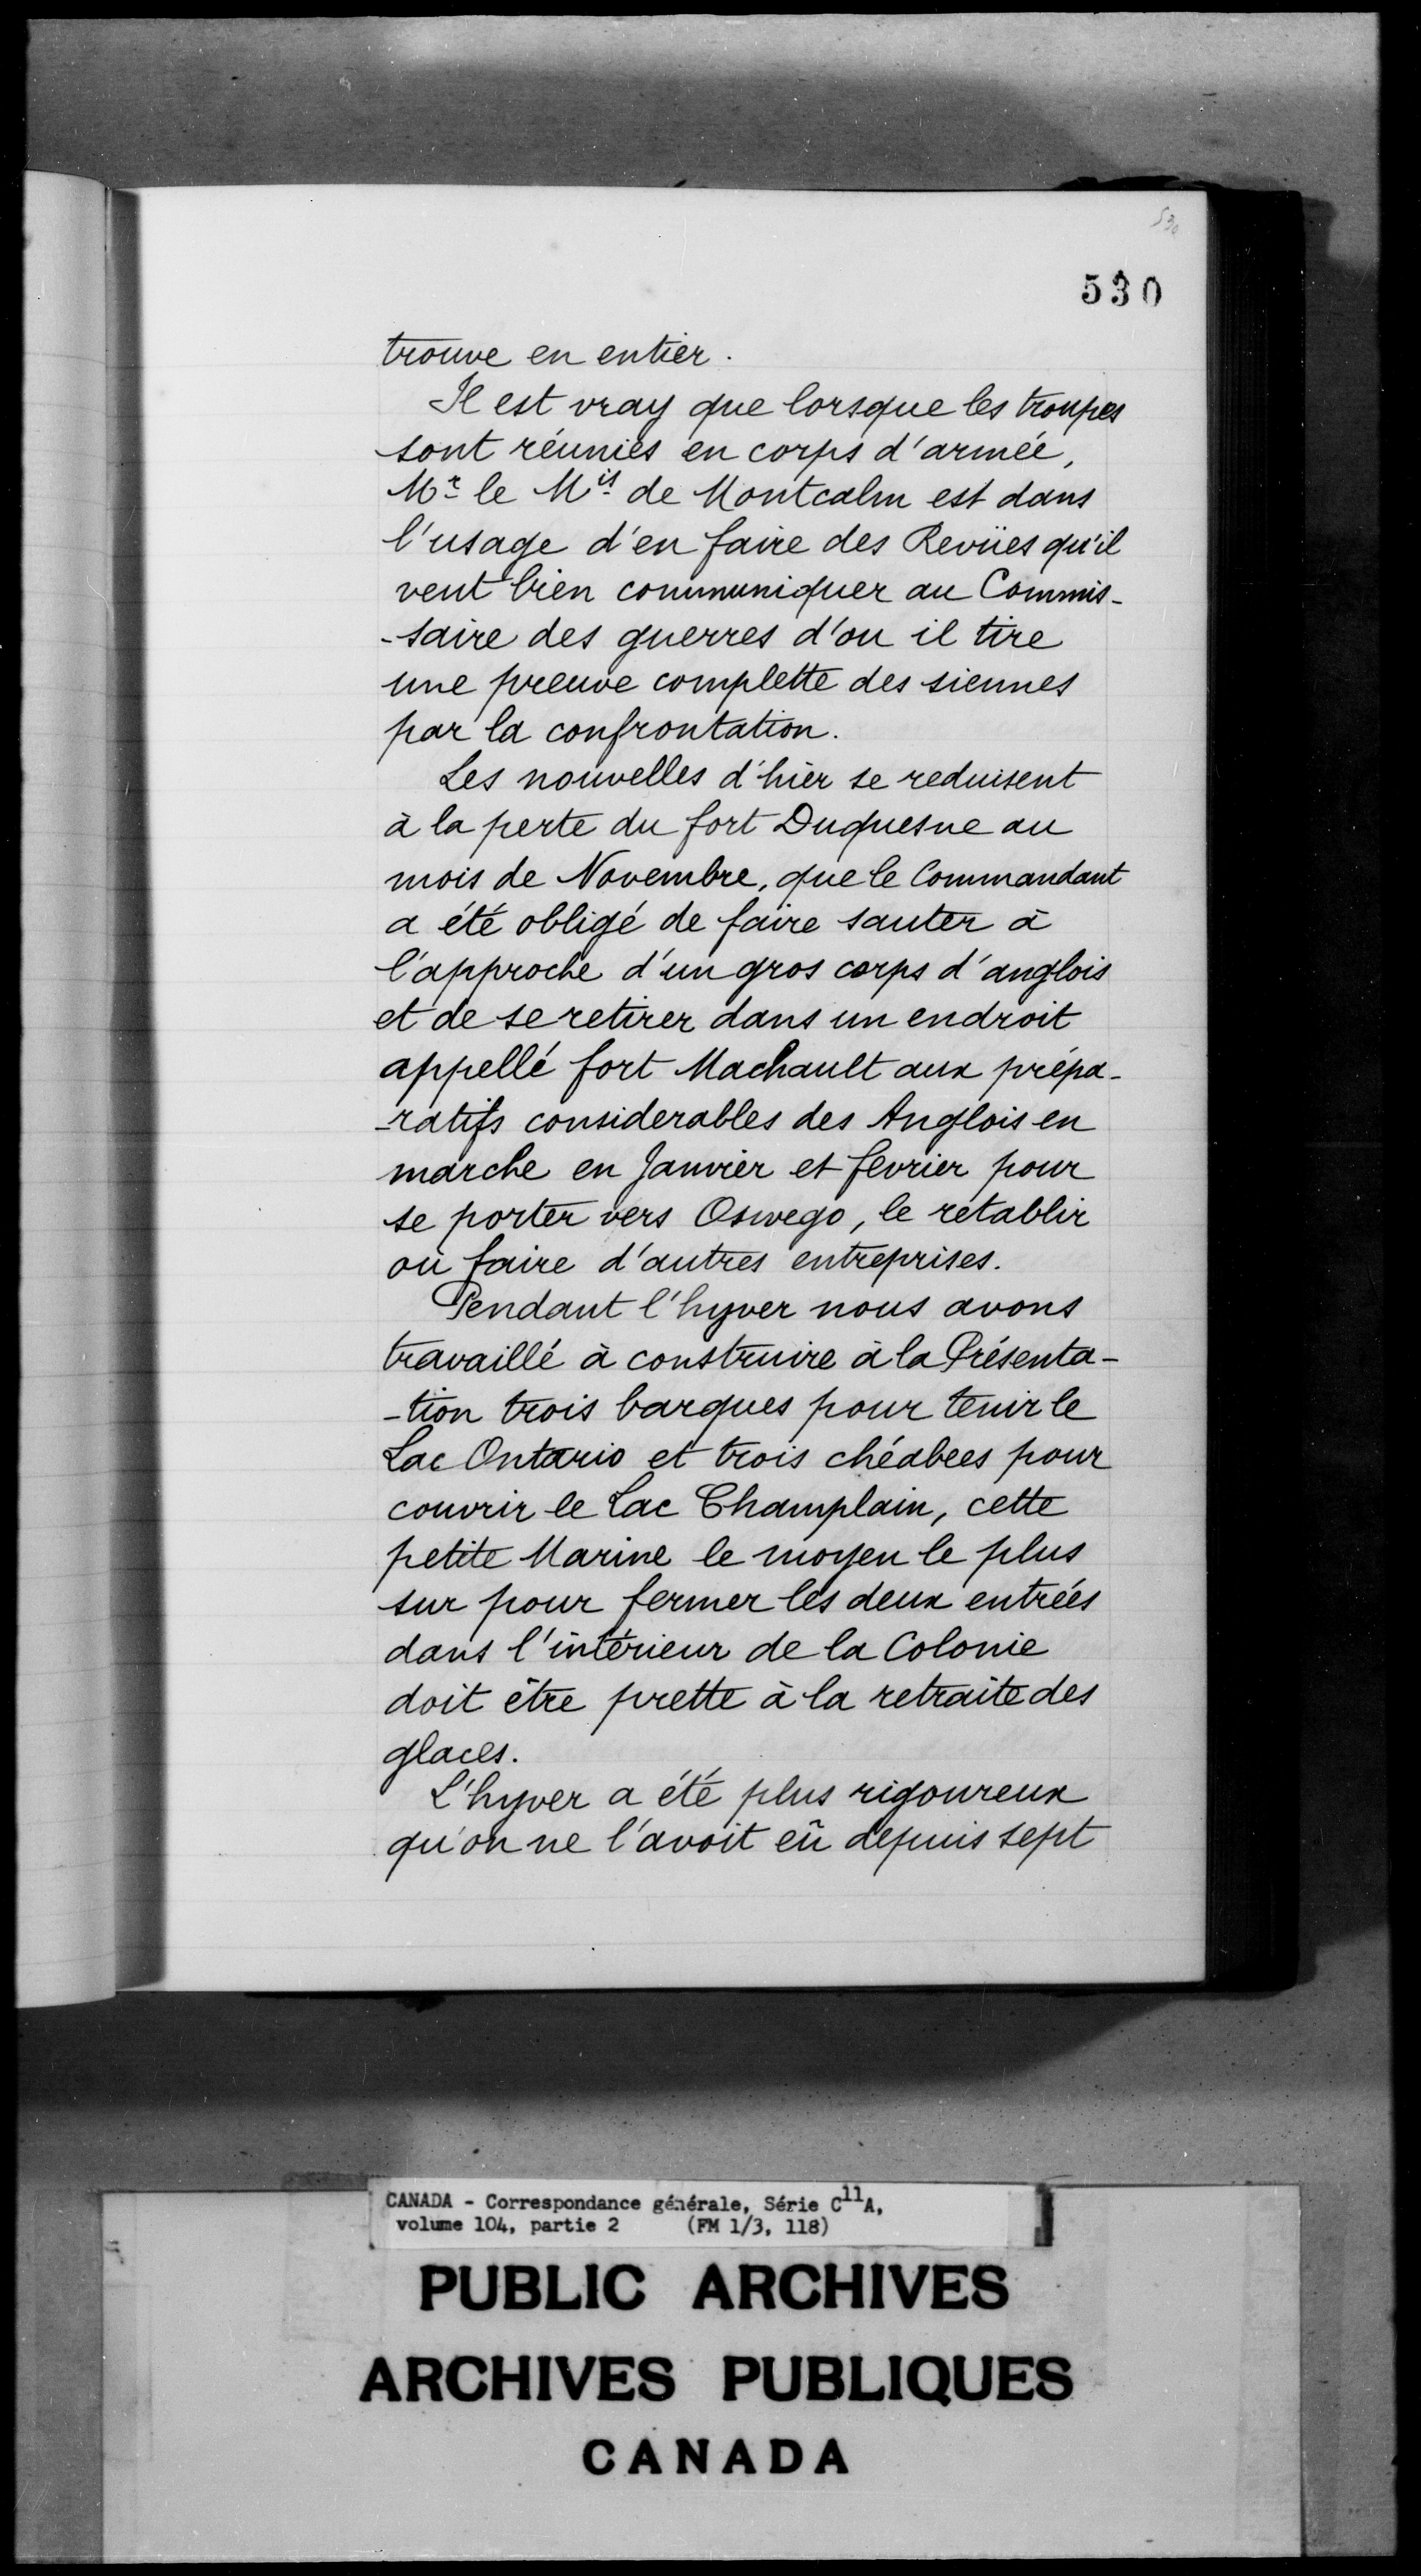 530
530
trouve en entier.
Il est vray que lorsque les troupes
sont réunies en corps d'armée,
Mr le Mis de Montcalm est dans
l'usage d'en faire des Revües qu'il
veut bien communiquer au Commis-
-saire des guerres d'ou il tire
une preuve complette des siennes
par la confrontation.
Les nouvelles d'hier se reduisent
à la perte du fort Duquesne au
mois de Novembre, que le Commandant
a été obligé de faire sauter à
l'approche d'un gros corps d'anglois
et de se retirer dans un endroit
appellé fort Machault aux prépa-
-ratifs considerables des Anglois en
marche en Janvier et fevrier pour
se porter vers Oswego, le rétablir
ou faire d'autres entreprises.
Pendant l'hyver nous avons
travaillé à construire à la Présenta-
-tion trois barques pour tenir le
Lac Ontario et trois chéabees pour
couvrir le Lac Champlain, cette
petite Marine le moyen le plus
sur pour fermer les deux entrées
dans l'intérieur de la Colonie
doit être prette à la retraite des
glaces.
L'hyver a été plus rigoureux
qu'on ne l'avoit eü depuis sept
CANADA - Correspondance générale, Série C11A,
volume 104, partie 2 (FM 1/3, 118)
PUBLIC ARCHIVES
ARCHIVES PUBLIQUES
CANADA